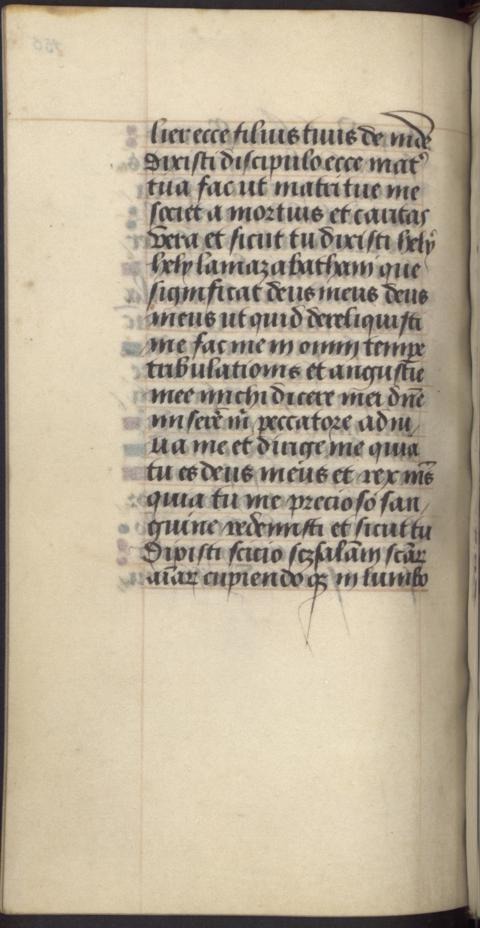 lier ecce filius tuus de īde
dixisti discipulo ecce mat᷒
tua fac ut matri tue me
societ a mortuis et caritas
vera et sicut tu dixisti hely
hely lamazabathani que
significat deus meus deus
meus ut quid dereliquisti
me fac me in omni tempe
tribulationis et angustie
mee michi dicere mei dn̄e
miserē m̄ peccatore adiu
va me et dirige me quia
tu es deus meus et rex m̄s
quia tu me precioso san
guine redemisti et sicut tu
dixisti scicio scz salām scāꝝ
aīaꝝ cupiendo qz in limbo